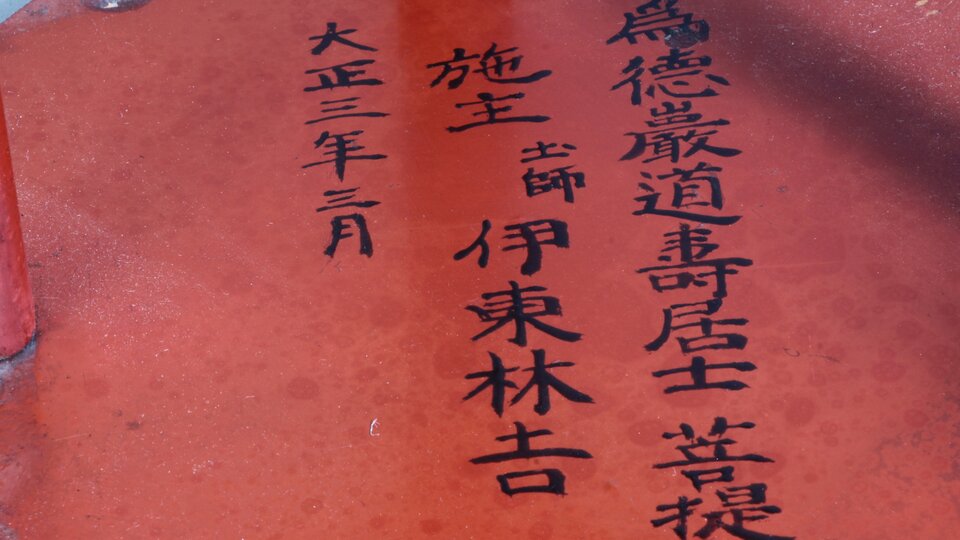 爲徳巌道壽居士菩提
施主 土師 伊東林𠮷
大正三年三月